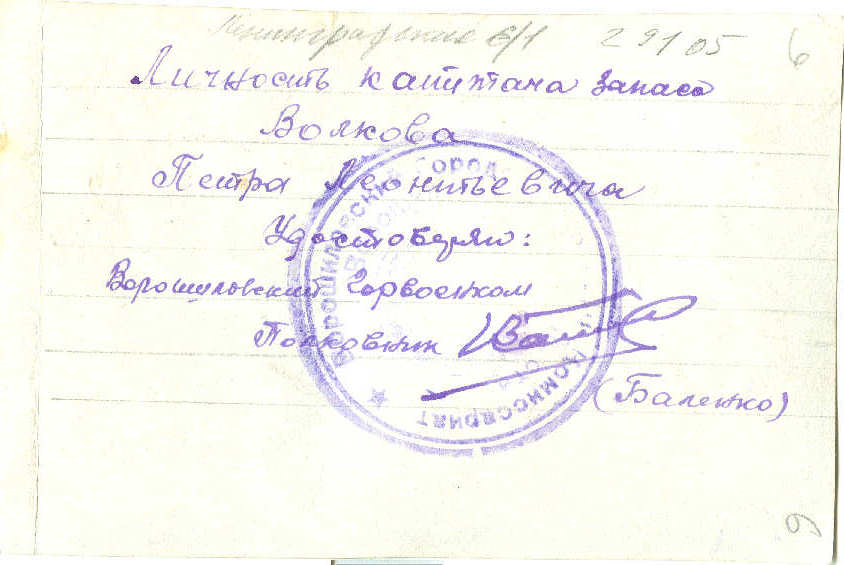 Ленинградский 291 05 6
Личность капитана запаса
Волкова
Петра Леонтьевича
Удостоверяю:
Ворошиловский Горвоенком
Полковник
(Баленко)
Ворошиловский Город
Комиссариат
6